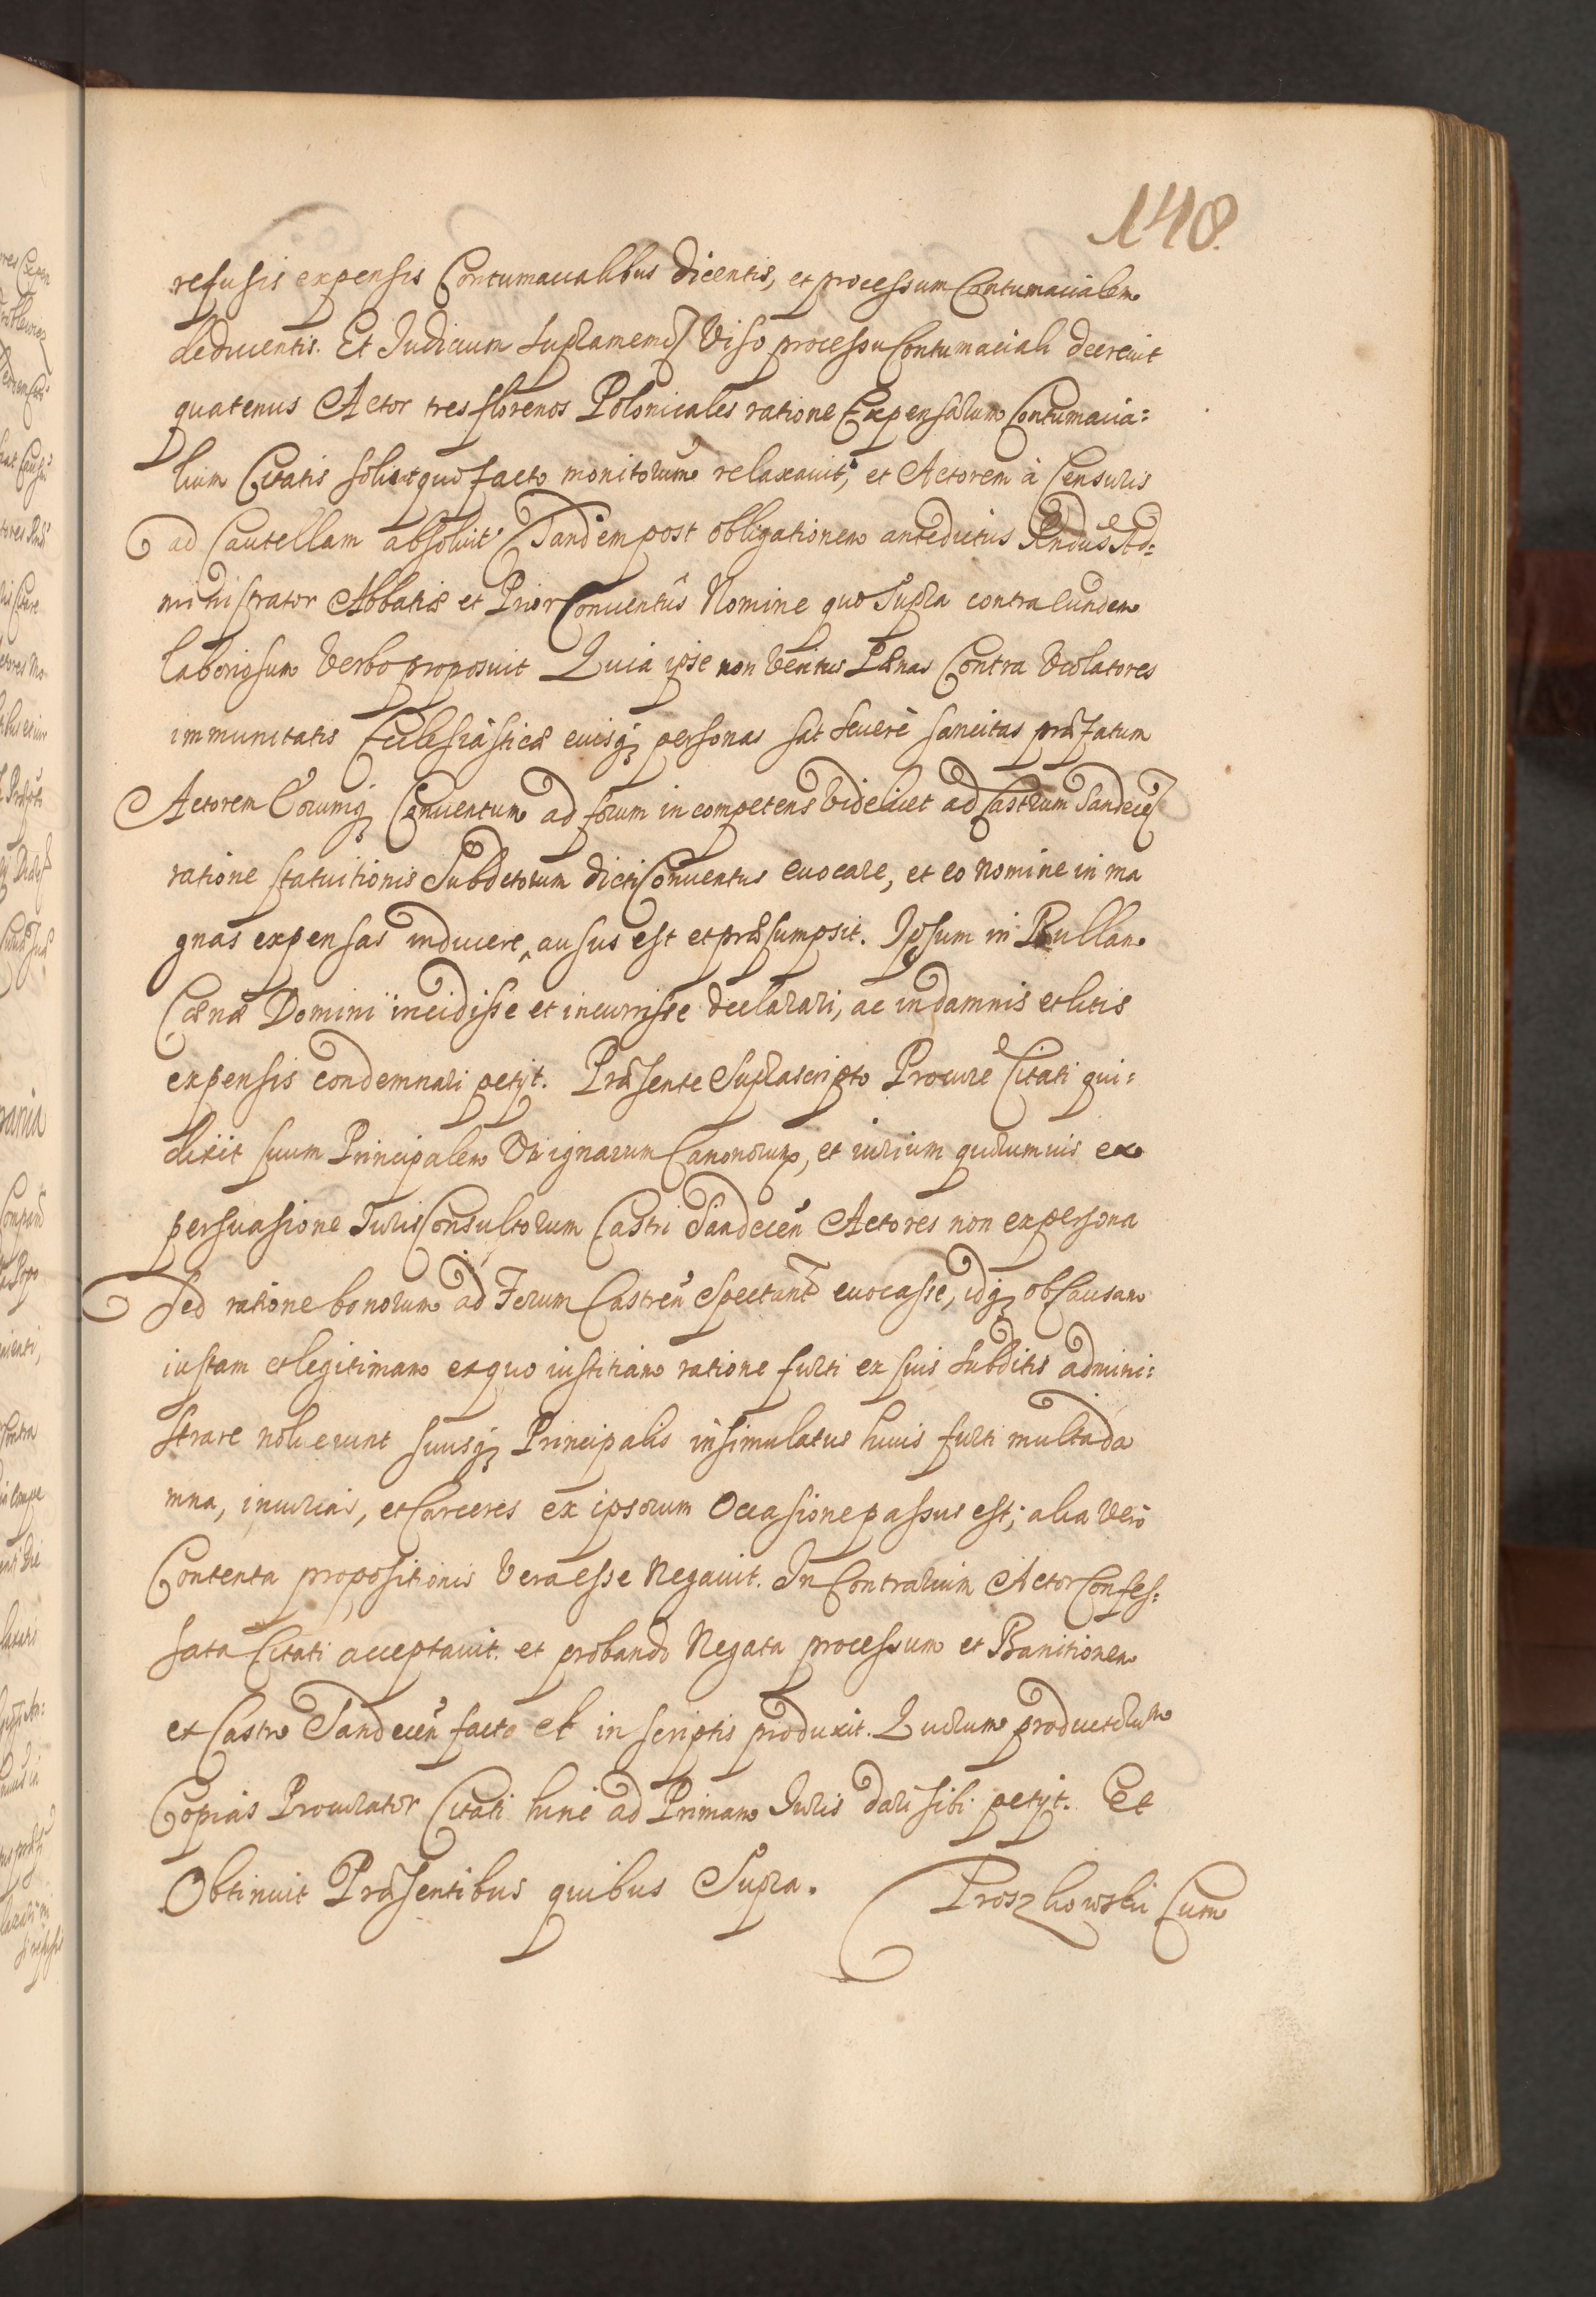 148.
refusis expensis Contumacialibus dicentis, et processum Contumacialem
deducentis. Et Judicium supramem̄ Viso processu Contumaciali decrevit
quatenus Actor tres florenos Polonicales ratione Expensarum Contumacia=
lium Citatis solvat quo facto monitorium relaxavit, et Actorem à Censuris
ad Cautellam absolvit Tandem post obligationem antedictus Rndus Ad=
ministrator Abbatiæ et Prior Conventûs Nomine quo Supra contra eundem
laboriosum Verbo proposuit Quia ipse non Veritus Pænas Contra Violatores
immunitatis Ecclesiasticæ eiusq personas sat severè sancitas præfatum
Actorem Eorumq Conventum ad forum incompetens Videlicet ad Castrum Sandecen
ratione statuitionis Subditorum dicti Conventus evocare, et eo nomine in ma
gnas expensas inducere ausus est et præsumpsit. Ipsum in Bullam
Cænæ Domini incidisse et incurrisse declarari, ac in damnis et litis
expensis condemnari petijt. Præsente Suprascripto Procure Citati qui=
dixit suum Principalem Ut ignarum Canonorum, et iurium quorumvis ex
persuasione Juris Consultorum Castri Sandecen̄ Actores non ex persona
sed ratione bonorum ad Forum Castren̄ Spectant evocasse, idq ob Causam
iustam et legitimam ex quo iustitiam ratione furti ex suis subditis admini=
strare noluerunt suusq Principalis insimulatus huius furti multa da
mna, iniurias, et Carceres ex ipsorum Occasione passus est; alia Vero
Contenta propositionis Vera esse Negavit. In Contrarium Actor Confes=
sata Citati acceptavit. et probando Negata processum et Banitionem
ex Castro Sandecen̄ facto et in scriptis produxit. Quorum productorum
Copias Procurator Citati hinc ad Primam Juris dari sibi petijt. Et
Obtinuit Præsentibus quibus Supra. Proszkowski Cum